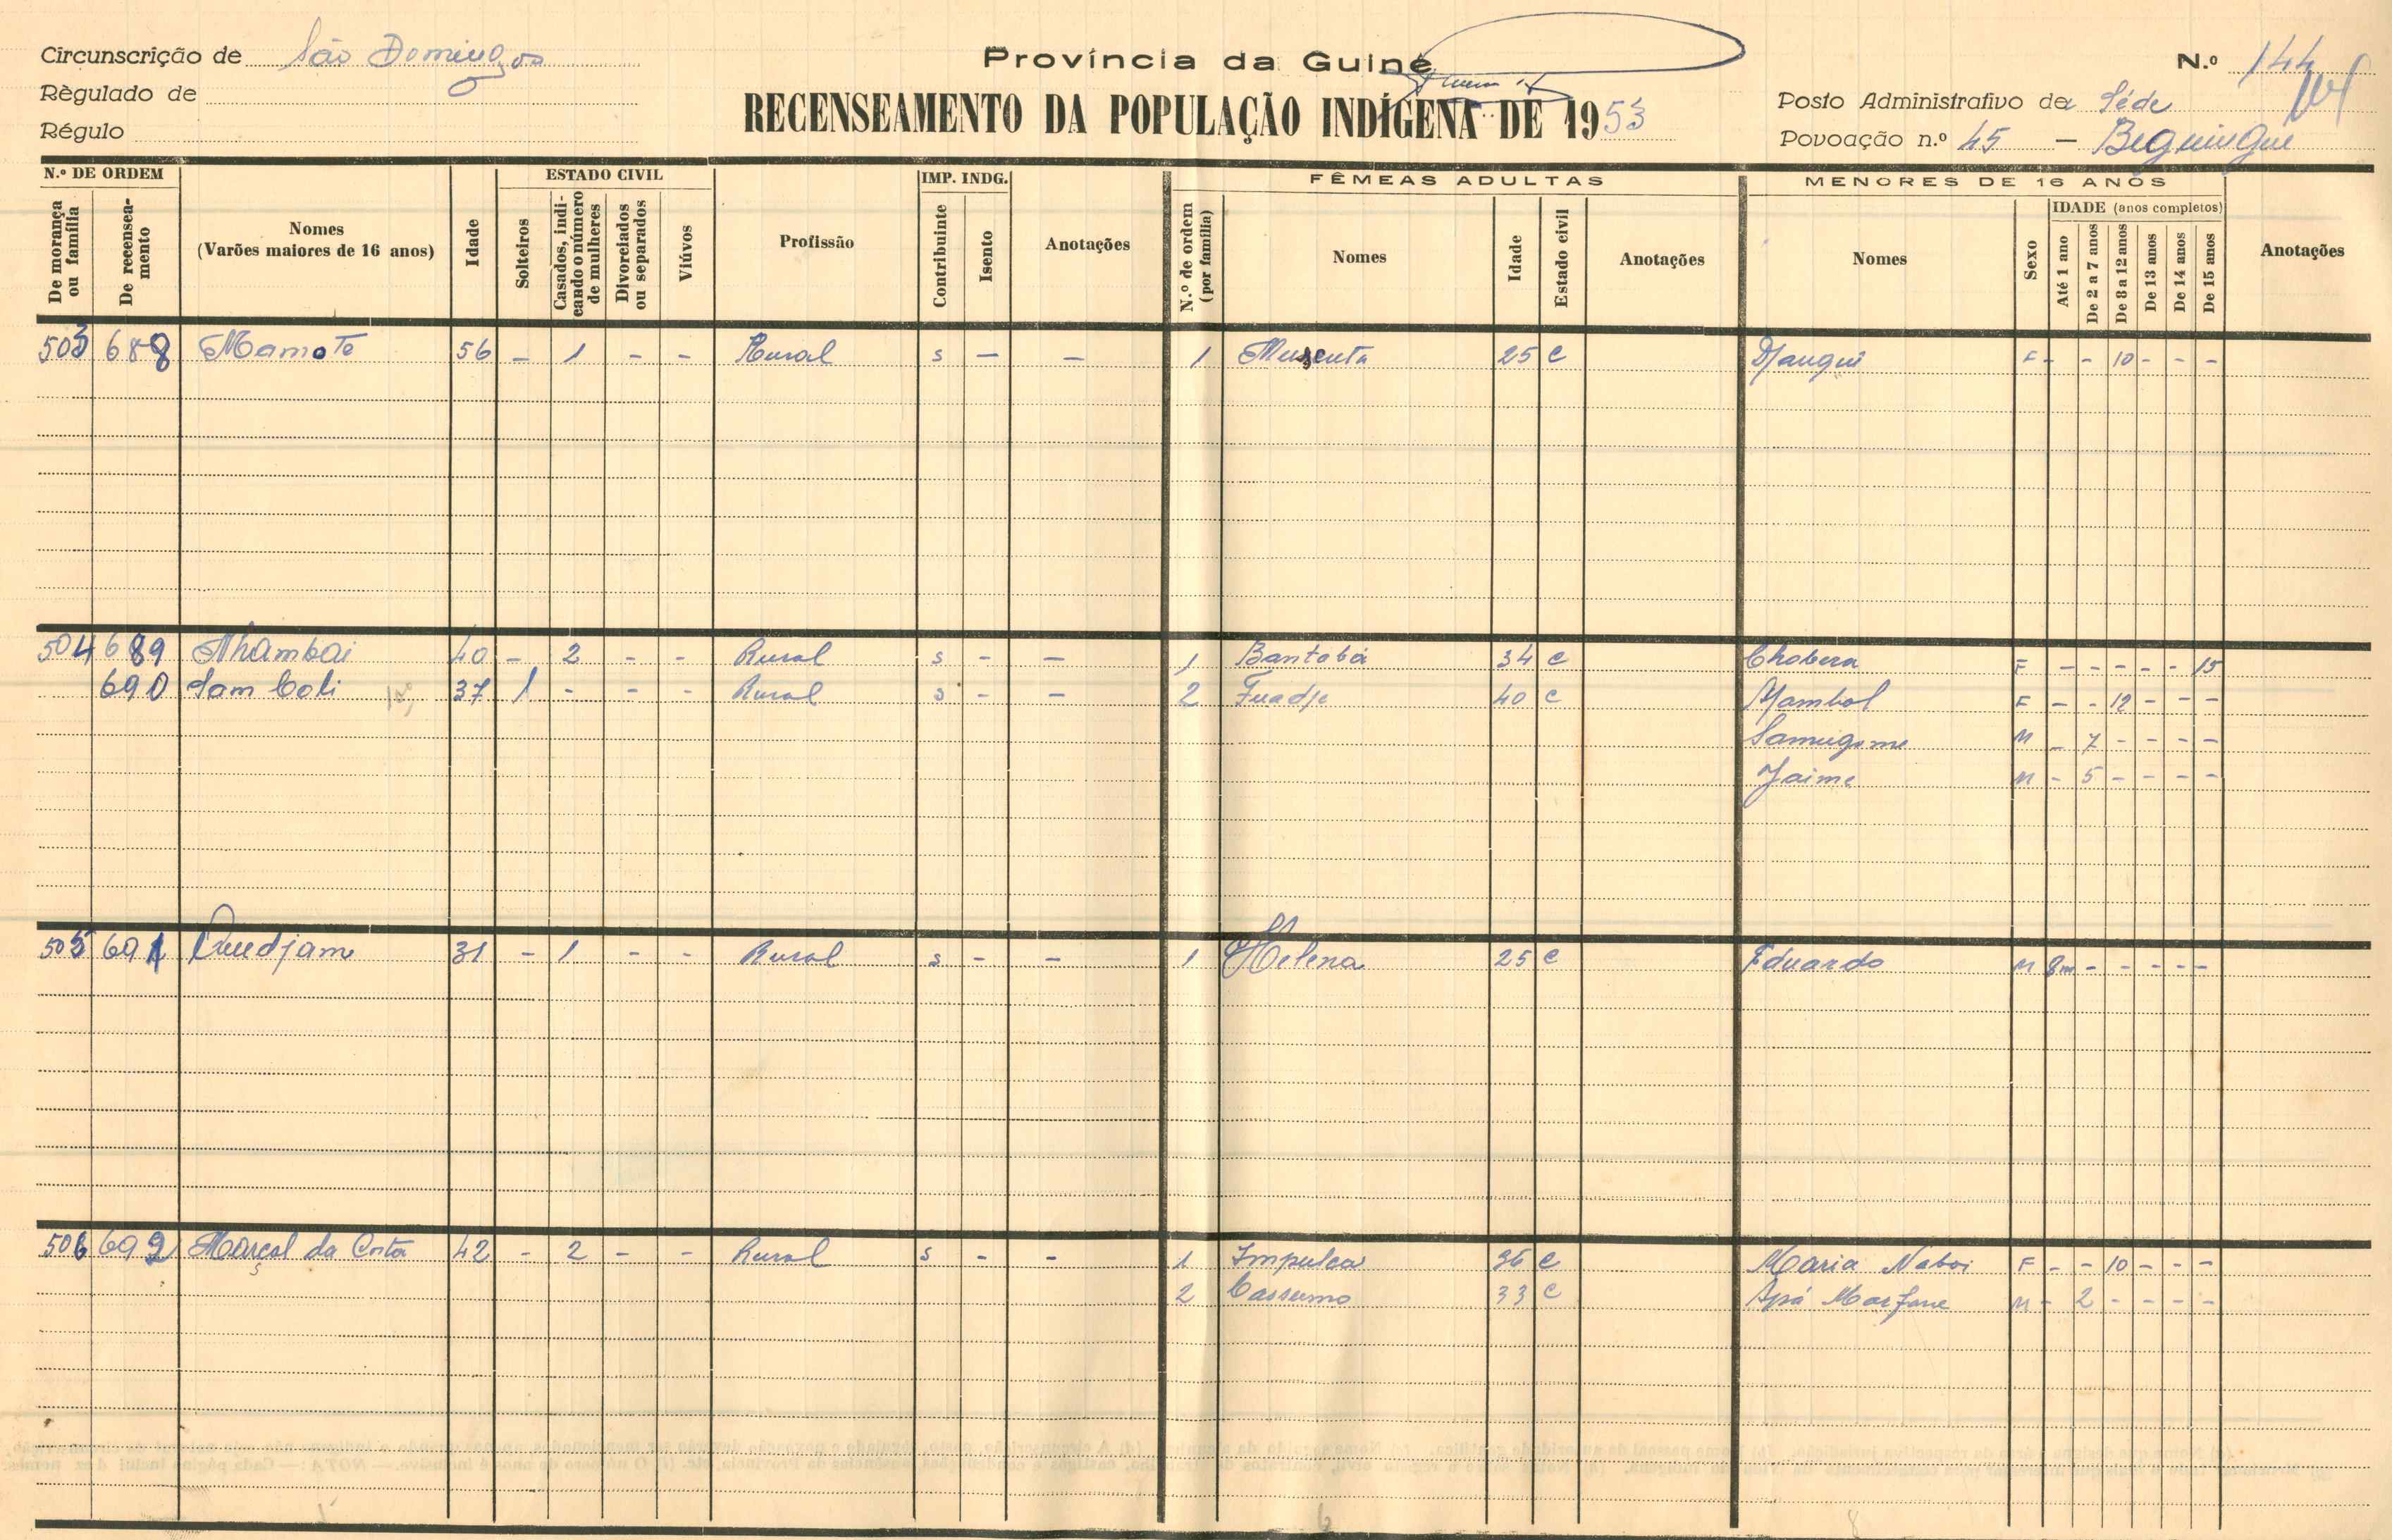 Circunscrição de São Domingos
Règulado de
Régulo
Província da Guiné
RECENSEAMENTO DA POPULAÇÃO INDÍGENA DE 1953
N.º 144
Posto Administrativo de Séde
Povoação n.º 45 — Beguingue
N.º DE ORDEM
De morança ou família
De recenseamento
Nomes
(Varões maiores de 16 anos)
Idade
ESTADO CIVIL
Solteiros
Casados, indicando o número de mulheres
Divorciados ou separados
Viúvos
Profissão
IMP. INDG.
Contribuinte
Isento
Anotações
FÊMEAS ADULTAS
N.º de ordem (por família)
Nomes
Idade
Estado civil
Anotações
MENORES DE 16 ANOS
Nomes
Sexo
IDADE (anos completos)
Até 1 ano
De 2 a 7 anos
De 8 a 12 anos
De 13 anos
De 14 anos
De 15 anos
Anotações
503 688 Mamote 56 - 1 - - Rural s — — 1 Musenta 25 C Djangui F - - 10 - - -
504 689 Nhambai 40 - 2 - - Rural s - — 1 Bantobá 34 C Chobera F - - - - - 15
690 Sam Coli 37 1 - - - Rural s - — 2 Fuadje 40 C Djambol F - - 12 - - -
Samugome M - 7 - - - -
Jaime M - 5 - - - -
505 691 Quedjame 31 - 1 - - Rural s - — 1 Helena 25 C Eduardo M 8m - - - - -
506 692 Marçal da Costa 42 - 2 - - Rural s - - 1 Impulca 36 C Maria Naboi F - - 10 - - -
2 Cassumo 33 C Apá Marfane M - 2 - - - -